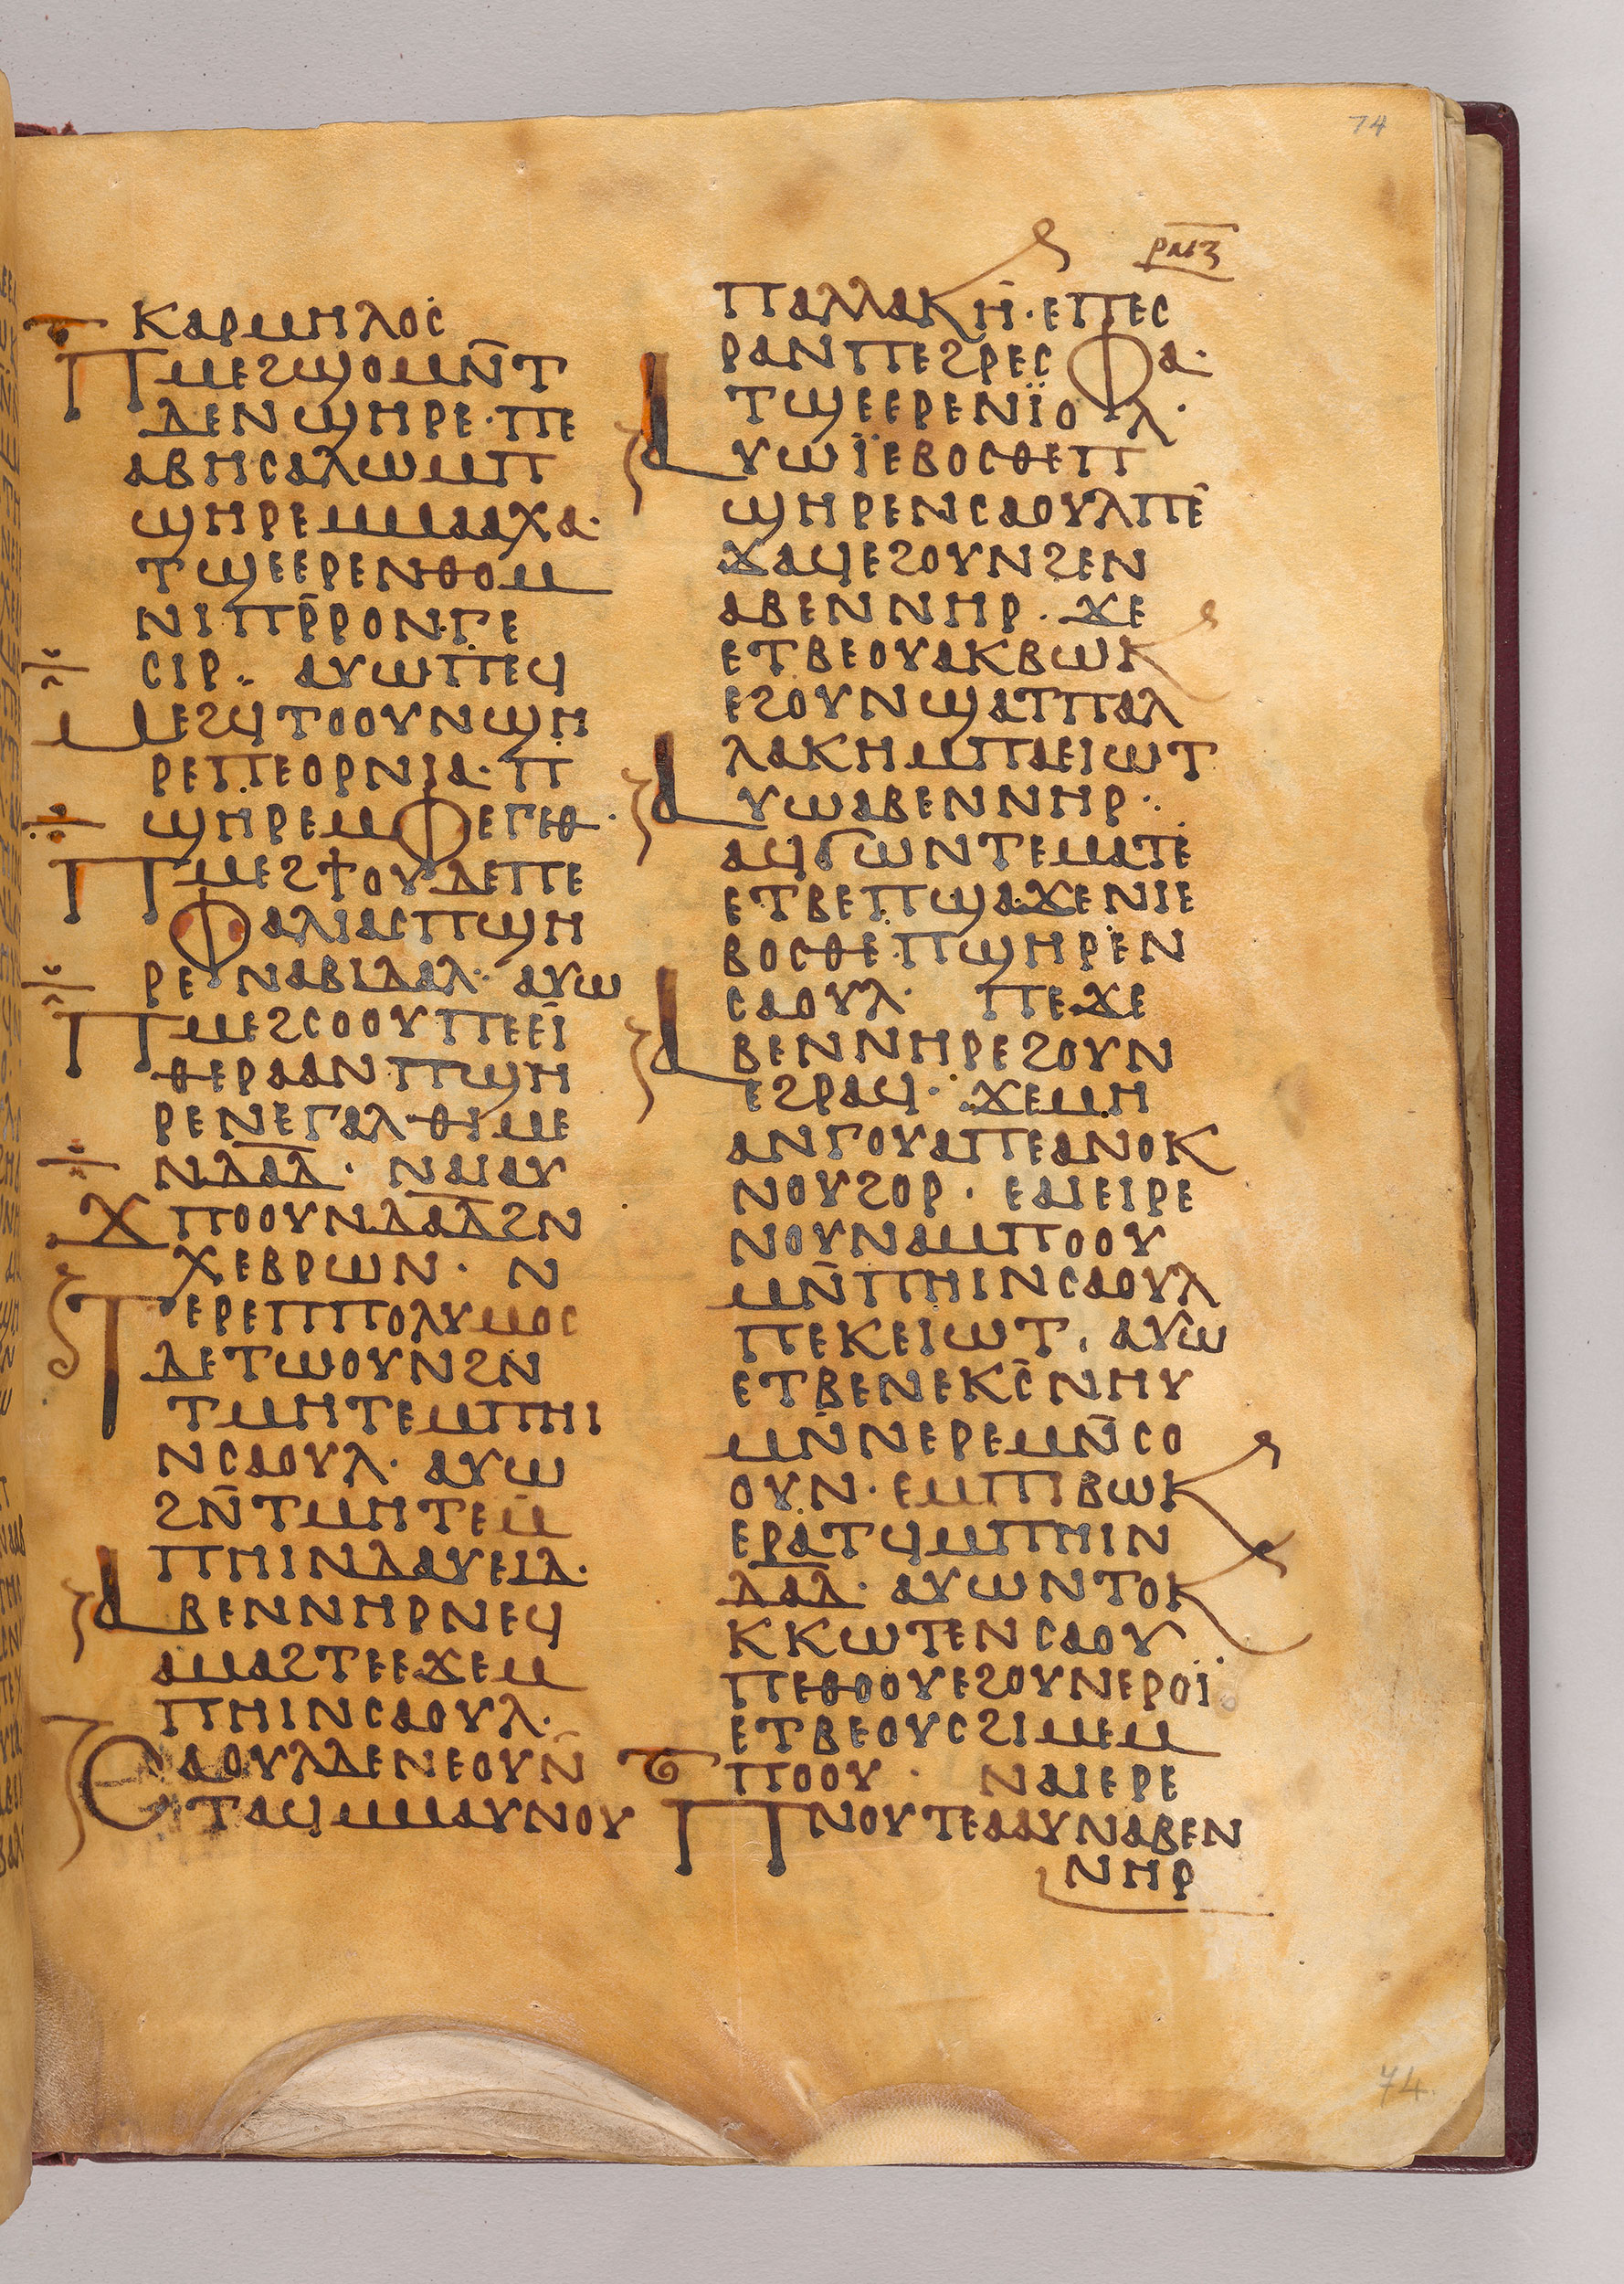 74
ⲣⲙⲍ
ⲕⲁⲣⲙⲏⲗⲟⲥ
ⲡⲙⲉϩϣⲟⲙⲛ̄ⲧ
ⲇⲉⲛϣⲏⲣⲉ·ⲡⲉ
ⲁⲃⲏⲥⲁⲗⲱⲙⲡ
ϣⲏⲣⲉⲙⲙⲁⲁⲭⲁ·
ⲧϣⲉⲉⲣⲉⲛⲑⲟⲙ
ⲛⲓⲡⲣ̄ⲣⲟⲛⲅⲉ
ⲥⲓⲣ·· ⲁⲩⲱⲡⲉϥ
ⲙⲉϩϥⲧⲟⲟⲩⲛϣⲏ
ⲣⲉⲡⲉⲟⲣⲛⲓⲁ·ⲡ
ϣⲏⲣⲉⲙⲫⲉⲅⲉⲑ·
ⲡⲙⲉϩϯⲟⲩⲇⲉⲡⲉ
ⲫⲁⲗⲓⲁⲥⲡϣⲏ
ⲣⲉⲛⲁⲃⲓⲇⲁⲗ· ⲁⲩⲱ
ⲡⲙⲉϩⲥⲟⲟⲩⲡⲉⲉⲓ
ⲑⲉⲣⲁⲁⲛⲡϣⲏ
ⲣⲉⲛⲉⲅⲁⲗ·ⲑⲓⲙⲉ
ⲛⲇⲁⲇ· ⲛⲁⲓⲁⲩ
ϫⲡⲟⲟⲩⲛⲇⲁⲇϩⲛ
ⲭⲉⲃⲣⲱⲛ· ⲛ
ⲧⲉⲣⲉⲡⲡⲟⲗⲩⲙⲟⲥ
ⲇⲉⲧⲱⲟⲩⲛϩⲛ
ⲧⲙⲏⲧⲉⲙⲡⲏⲓ
ⲛⲥⲁⲟⲩⲗ· ⲁⲩⲱ
ϩⲛ̄ⲧⲙⲏⲧⲉⲙ
ⲡⲏⲓⲛⲇⲁⲩⲉⲓⲇ·
ⲁⲃⲉⲛⲛⲏⲣⲛⲉϥ
ⲁⲙⲁϩⲧⲉⲉϫⲉⲙ
ⲡⲏⲓⲛⲥⲁⲟⲩⲗ·
ⲥⲁⲟⲩⲗⲇⲉⲛⲉⲟⲩⲛ̄
ⲧⲁϥⲙⲙⲁⲩⲛⲟⲩ
ⲡⲁⲗⲗⲁⲕⲏ·ⲉⲡⲉⲥ
ⲣⲁⲛⲡⲉϩⲣⲉⲥⲫⲁ·
ⲧϣⲉⲉⲣⲉⲛⲓ̈ⲟⲗ·
ⲁⲩⲱⲓ̈ⲉⲃⲟⲥⲑⲉⲡ
ϣⲏⲣⲉⲛⲥⲁⲟⲩⲗⲡⲉ
ϫⲁϥⲉϩⲟⲩⲛϩⲉⲛ
ⲁⲃⲉⲛⲛⲏⲣ· ϫⲉ
ⲉⲧⲃⲉⲟⲩⲁⲕⲃⲱⲕ
ⲉϩⲟⲩⲛϣⲁⲧⲡⲁⲗ
ⲗⲁⲕⲏⲙⲡⲁⲉⲓⲱⲧ
ⲁⲩⲱⲁⲃⲉⲛⲛⲏⲣ··
ⲁϥϭⲱⲛⲧⲉⲙⲁⲧⲉ
ⲉⲧⲃⲉⲡϣⲁϫⲉⲛⲓⲉ
ⲃⲟⲥⲑⲉ·ⲡϣⲏⲣⲉⲛ
ⲥⲁⲟⲩⲗ· ⲡⲉϫⲉ
ⲁⲃⲉⲛⲛⲏⲣⲉϩⲟⲩⲛ
ⲉϩⲣⲁϥ· ϫⲉⲙⲏ
ⲁⲛⲅⲟⲩⲁⲡⲉⲁⲛⲟⲕ
ⲛⲟⲩϩⲟⲣ· ⲉⲁⲓⲉⲓⲣⲉ
ⲛⲟⲩⲛⲁⲙⲡⲟⲟⲩ
ⲙⲛ̄ⲡⲏⲓⲛⲥⲁⲟⲩⲗ
ⲡⲉⲕⲉⲓⲱⲧ, ⲁⲩⲱ
ⲉⲧⲃⲉⲛⲉⲕⲥ̄ⲛⲏⲩ
ⲙⲛ̄ⲛⲉⲣⲉⲙⲛ̄ⲥⲟ
ⲟⲩⲛ·ⲉⲙⲡⲓⲃⲱⲕ
ⲉⲣⲁⲧϥⲙⲡⲏⲓⲛ
ⲇⲁⲇ· ⲁⲩⲱⲛⲧⲟⲕ
ⲕⲕⲱⲧⲉⲛⲥⲁⲟⲩ
ⲡⲉⲑⲟⲟⲩⲉϩⲟⲩⲛⲉⲣⲟⲓ̈
ⲉⲧⲃⲉⲟⲩⲥϩⲓⲙⲉⲙ
ⲡⲟⲟⲩ· ⲛⲁⲓⲉⲣⲉ
ⲡⲛⲟⲩⲧⲉⲁⲁⲩⲛⲁⲃⲉⲛ
ⲛⲏⲣ
74.